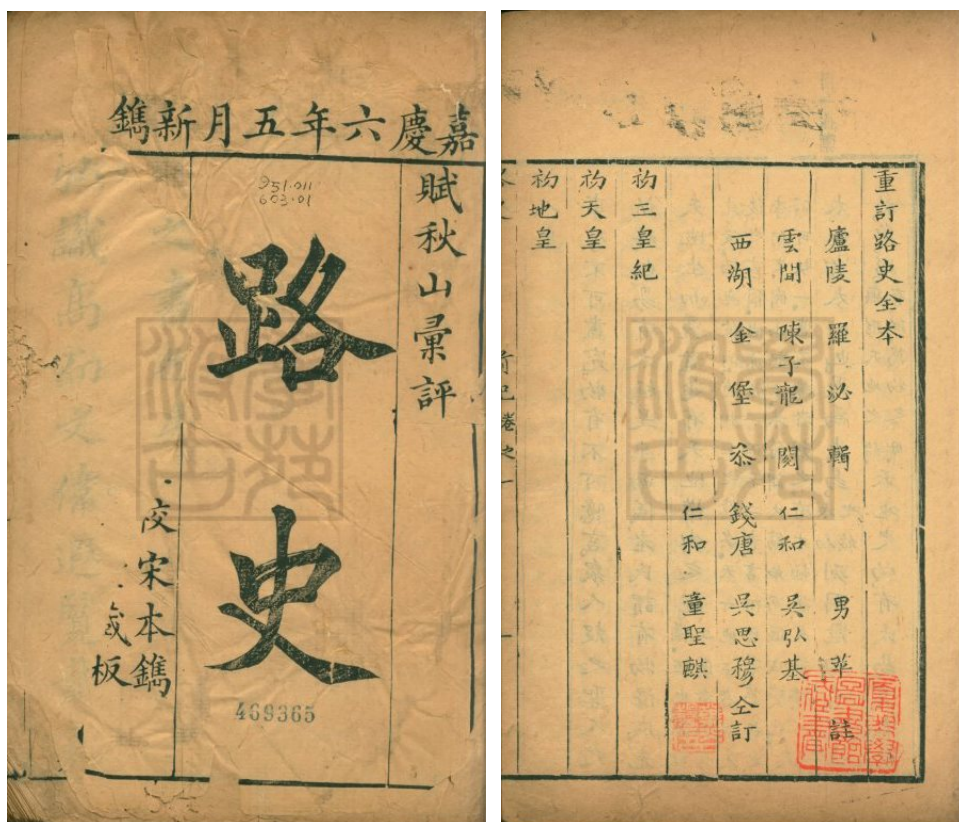 嘉慶六年五月新鐫
賦秋山彙評
951.011
603.01
路史
校宋本鐫
藏板
469365
重訂路史全本
廬陵 羅泌 輯 男 苹 註
雲間 陳子龍 閱 仁和 吳弘基
西湖 金堡 叅 錢唐 吳思穆 仝訂
仁和 童聖麒
初三皇紀
初天皇
初地皇
前紀卷之一